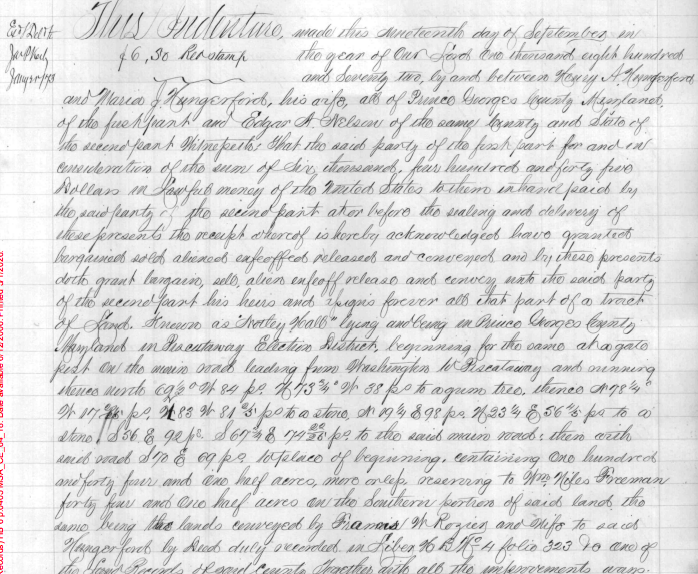 This Indenture, made this nineteenth day of September in
$6,50 Rev stamp the year of Our Lord One thousand eight hundred
and seventy two, by and between Henry A. Hungerford
and Maria J Hungerford, his wife, all of Prince Georges County Maryland,
of the first part and Edgar A. Nelson of the same County and State of
the second part Witnesseth: that the said party of the first part for and in
consideration of the sum of Six thousand, four hundred and forty five
Dollars in Lawful money of the United States to them in hand paid by
the said party of the second part at or before the sealing and delivery of
these presents the receipt whereof is hereby acknowledged have granted
bargained sold aliened enfeoffed released and conveyed and by these presents
doth grant bargain, sell, alien enfeoff release and convey unto the said party
of the second part his heirs and assigns forever all that part of a tract
of Land. Known as "Notley Hall" lying and being in Prince Georges County
Maryland in Piscataway Election District, beginning for the same at a gate
post on the main road leading from Washington to Piscataway and running
thence north W 84 ps. 38 ps to a gum tree, thence
W 17 ps. 83 W 81 ps to a stone, E 98 ps. E 36 ps to a
stone, S 36 E 92 ps. S 67 E 74 ps. to the said main road: then with
said road S 70 E 69 ps. to place of beginning, containing One hundred
and forty four and One half acres, more or less reserving to Wm Niles Freeman
forty four and One half acres on the Southern portion of said land, the
same being the lands conveyed by Francis W Rozier and Wife to said
Hungerford by Deed duly recorded in Liber H B No 4 folio 323 &c One of
the Land Records of said County Together with all the improvements ways